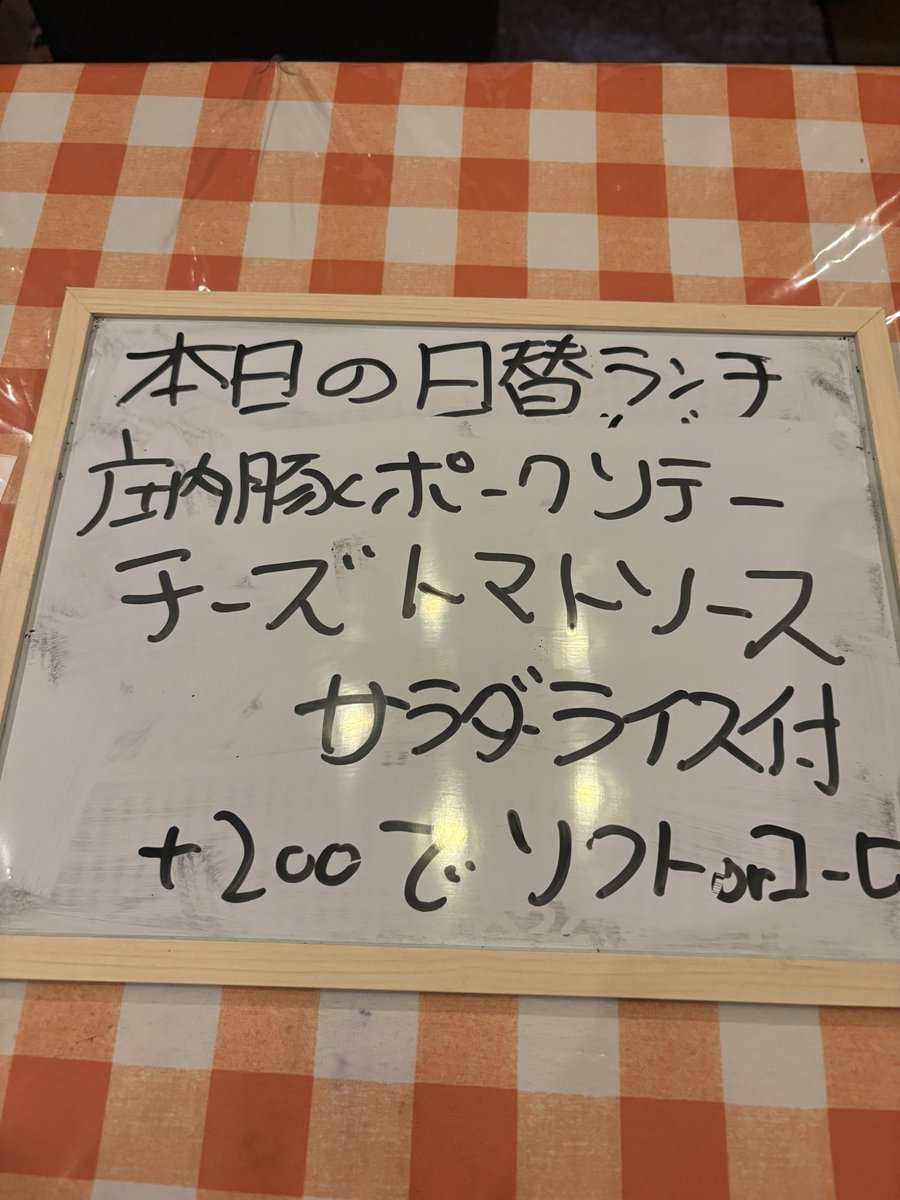 本日の日替ランチ
庄内豚ポークソテー
チーズトマトソース
サラダライス付
+200で ソフトorコーヒ